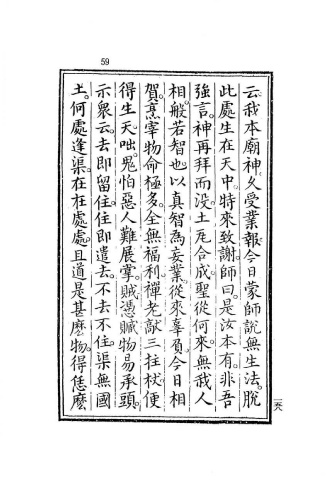 59
云我本廟神久受業報今日蒙師說無生法脫
此處生在天中特來致謝師曰是汝本有非吾
強言神再拜而没土瓦合成聖從何來無我人
相般若智也以真智為妄業從來辜負今日相
賀烹宰物命極多全無福利禪老敲三拄杖便
得生天咄鬼怕惡人難展掌賊憑贓物易承頭
示衆云去即留住住即遣去不去不住渠無國
土何處逢渠在在處處且道是甚麼物得恁麼
一六八